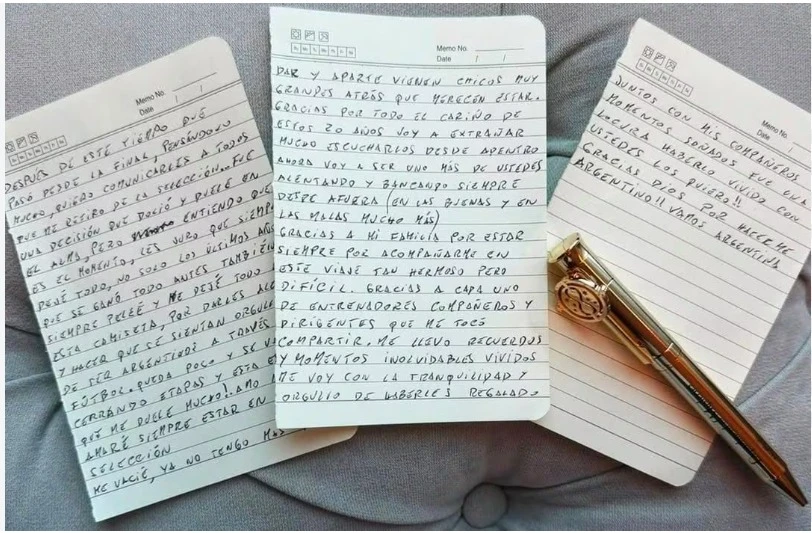 Memo No.
Date / /
DESPUÉS DE ESTE TIEMPO QUE
PASÓ DESDE LA FINAL, PENSÁNDOLO
MUCHO, QUIERO COMUNICARLES A TODOS
QUE ME RETIRO DE LA SELECCIÓN. FUE
UNA DECISIÓN QUE DOLIÓ Y DUELE EN
EL ALMA, PERO ENTIENDO QUE
ES EL MOMENTO, LES JURO QUE SIEMPRE
DEJÉ TODO, NO SOLO LOS ÚLTIMOS AÑOS
QUE SE GANÓ TODO ANTES TAMBIÉN
SIEMPRE PELEÉ Y ME DEJÉ TODO
ESTA CAMISETA, POR DARLES
Y HACER QUE SE SIENTAN
DE SER ARGENTINOS A TRAVÉS
FÚTBOL. QUEDA POCO Y SE
CERRANDO ETAPAS Y ESTA
QUÉ ME DUELE MUCHO!. AMO
AMARÉ SIEMPRE ESTAR EN
SELECCIÓN
ME VACIÉ, YA NO TENGO MÁS
Memo No.
Date / /
DAR Y APARTE VIENEN CHICOS MUY
GRANDES ATRÁS QUE MERECEN ESTAR.
GRACIAS POR TODO EL CARIÑO DE
ESTOS 20 AÑOS VOY A EXTRAÑAR
MUCHO ESCUCHARLOS DESDE ADENTRO
AHORA VOY A SER UNO MÁS DE USTEDES
ALENTANDO Y BANCANDO SIEMPRE
DESDE AFUERA (EN LAS BUENAS Y EN
LAS MALAS MUCHO MÁS)
GRACIAS A MI FAMILIA POR ESTAR
SIEMPRE POR ACOMPAÑARME EN
ESTE VIAJE TAN HERMOSO PERO
DIFÍCIL. GRACIAS A CADA UNO
DE ENTRENADORES COMPAÑEROS Y
DIRIGENTES QUE ME TOCÓ
COMPARTIR. ME LLEVO RECUERDOS
Y MOMENTOS INOLVIDABLES VIVIDOS
ME VOY CON LA TRANQUILIDAD Y
ORGULLO DE HABERLES REGALADO
Memo No.
Date / /
JUNTOS CON MIS COMPAÑEROS
MOMENTOS SOÑADOS FUE UNA
LOCURA HABERLO VIVIDO CON
USTEDES LOS QUIERO!!
GRACIAS DIOS POR HACERME
ARGENTINO!! VAMOS ARGENTINA